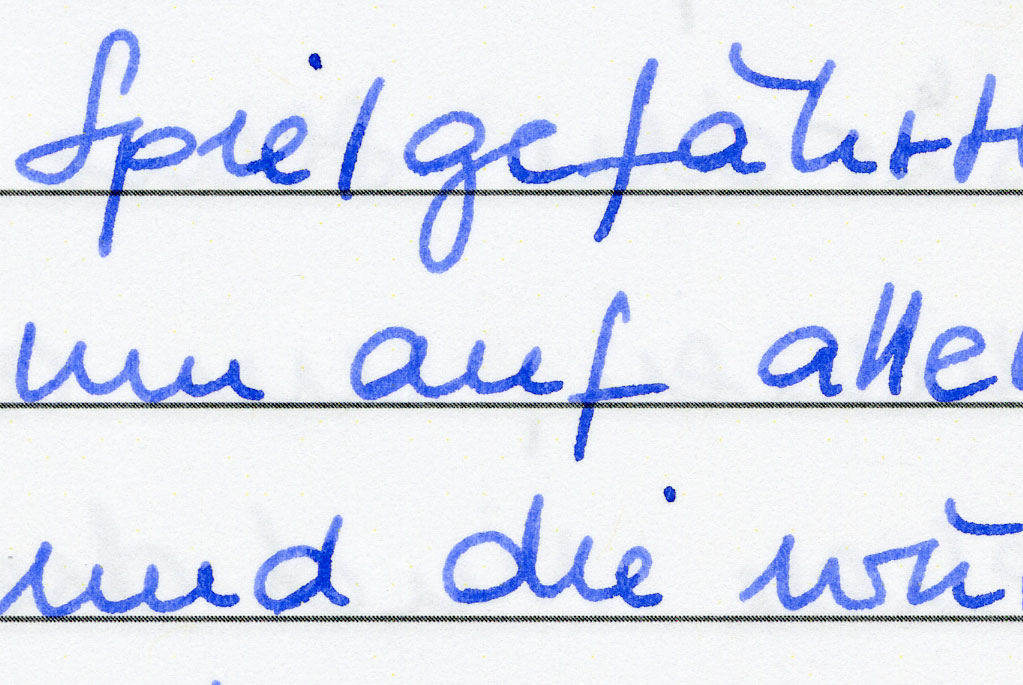 Spielgefährt
nun auf alle
und die wü